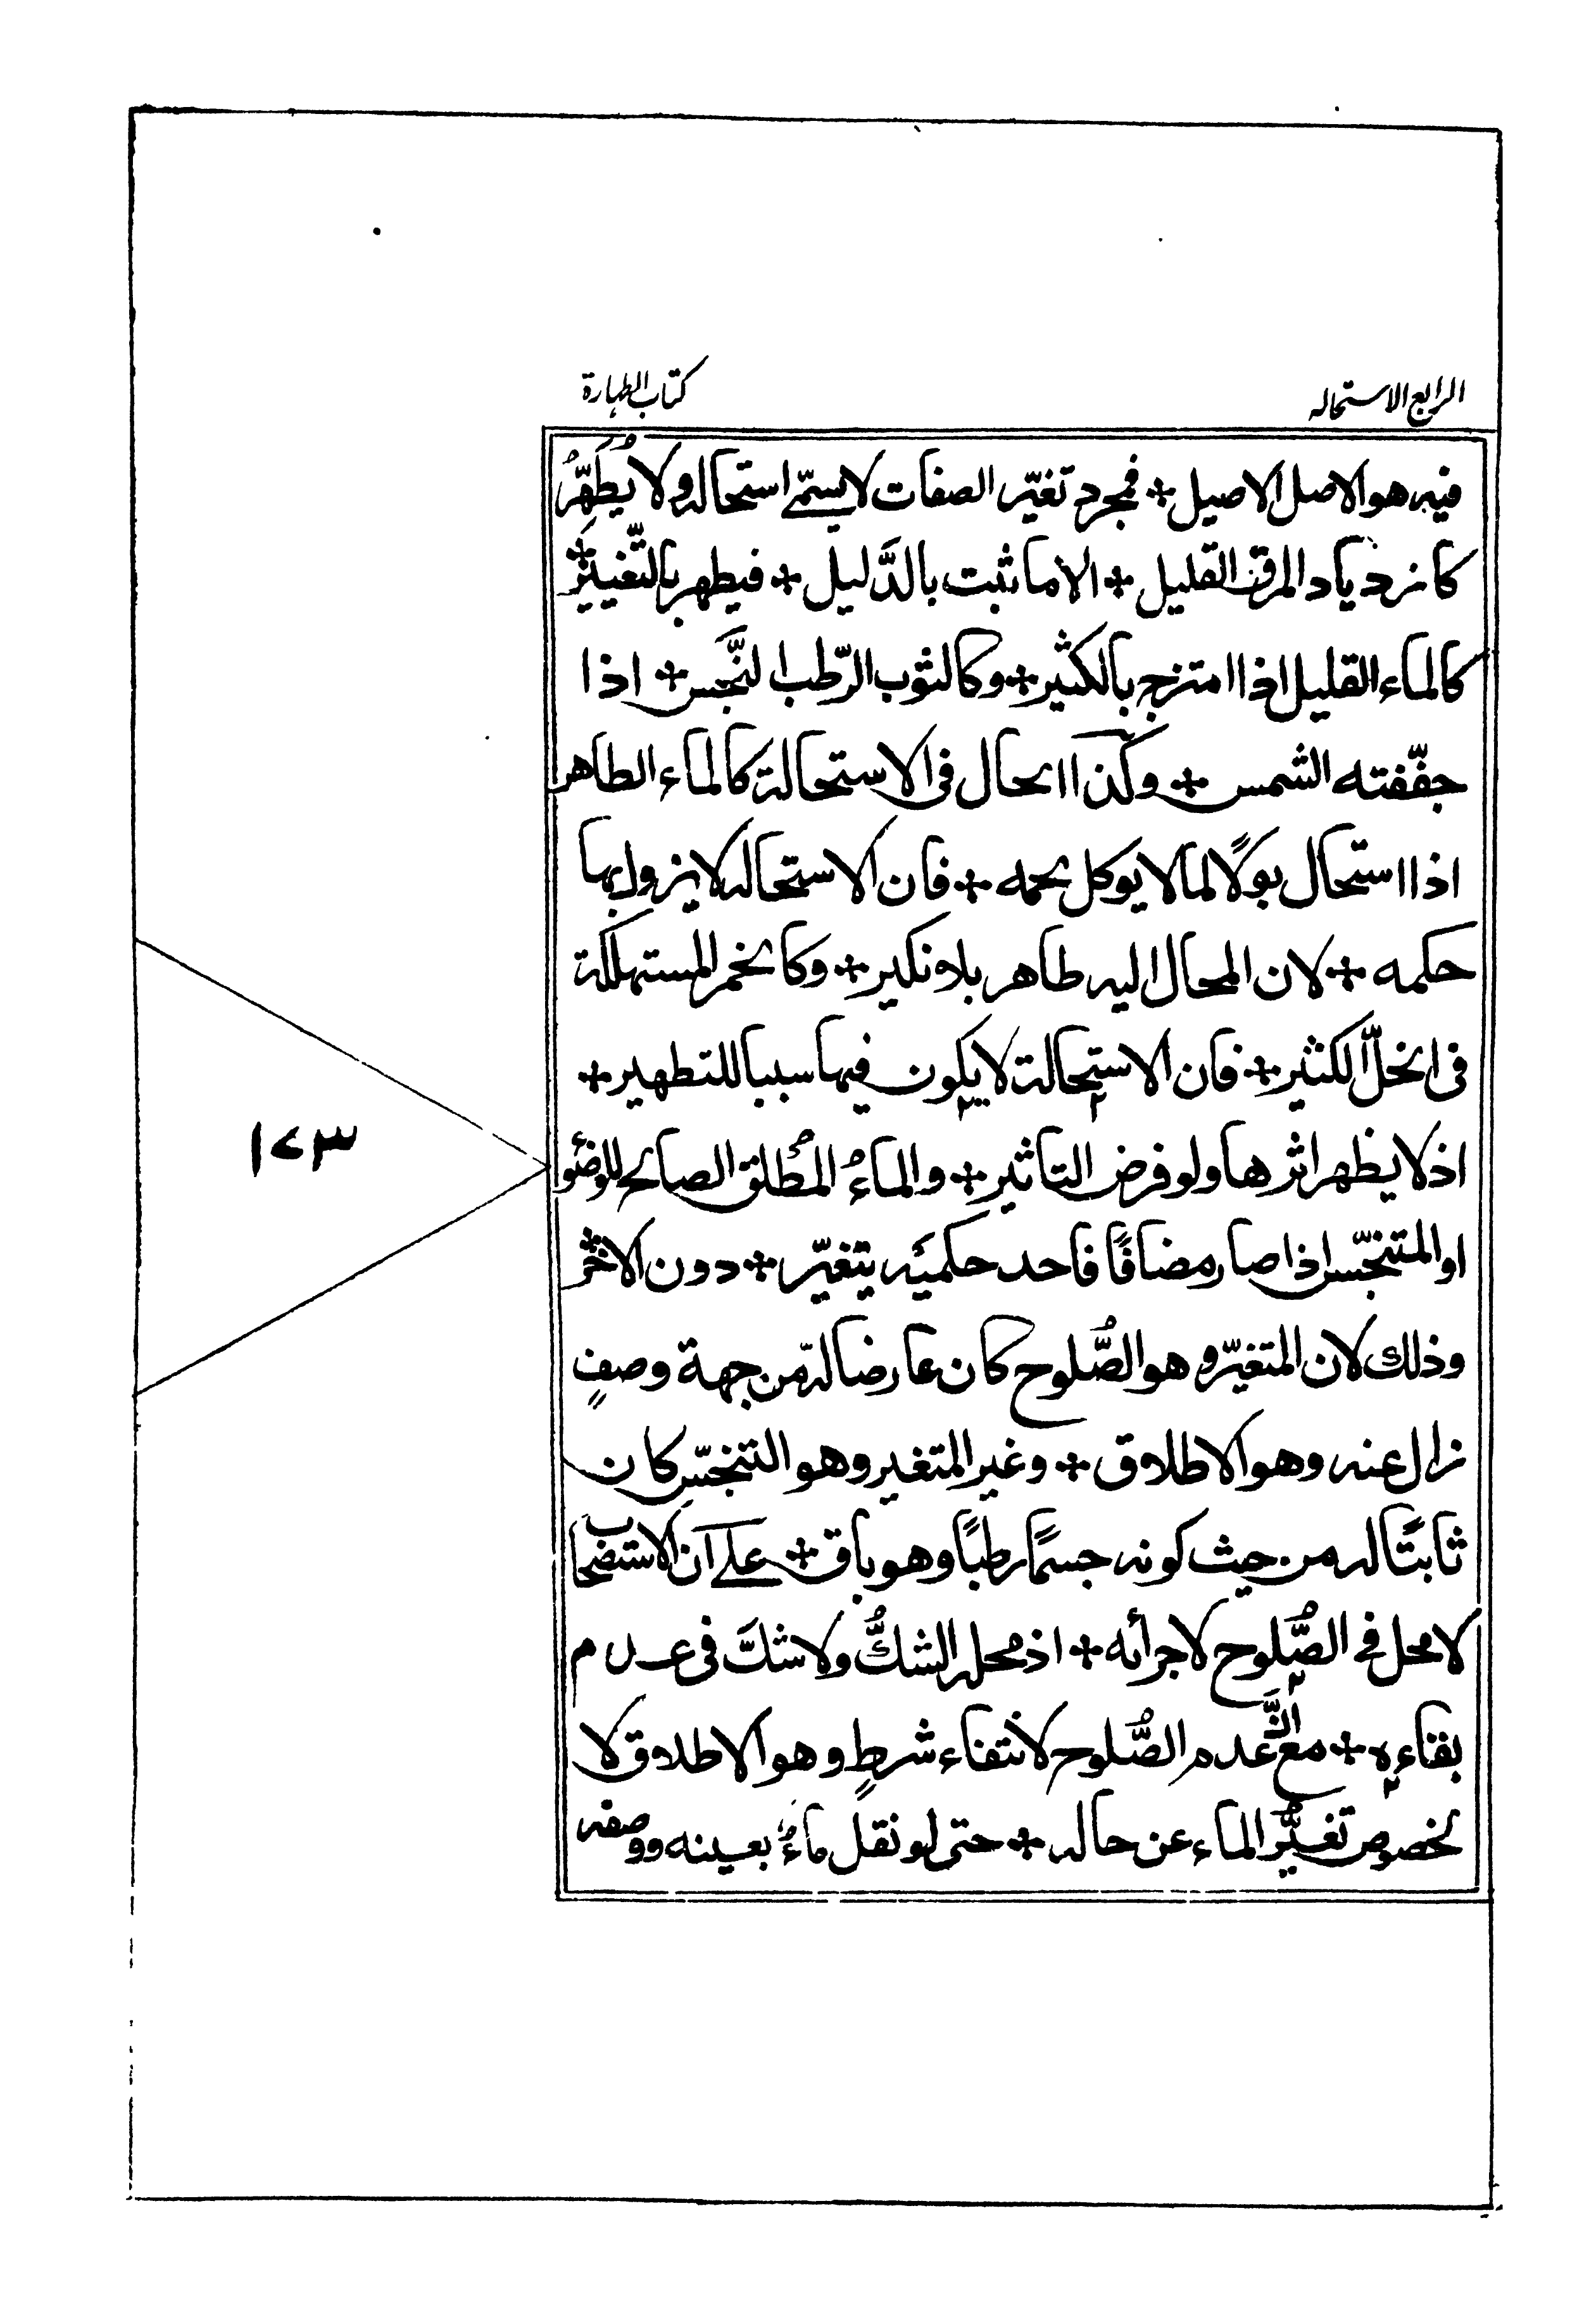 الرابع الاستحاله
كتاب الطهارة
فيه هو الاصل الاصيل + فمجرد تغيّر الصفات لا يسمّى استحالة ولا يُطَهِّرُ
كازدياد المرق القليل + الا ما ثبت بالدَّليل + فيطهر بالتّغيير +
كالماء القليل اذا امتزج بالكثير + وكالثوب الرّطب النَّجس + اذا
جفّفته الشمس + وكذا الحال فى الاستحالة كالماء الطاهر
اذا استحال بولًا لما لا يوكل لحمه + فان الاستحاله لا يزول بها
حكمه + لان المحال اليه طاهر بلا نكير + وكالخمر المستهلكة
فى الخلّ الكثير + فان الاستحالة لا يكون فيها سببا للتطهير +
اذ لا يظهر اثرها ولو فرض التاثير + والماءُ المُطلق الصالح للوضوء
او المتنجّس اذا صار مضافًا فاحد حكميَه يتغيّر + دون الاخر +
وذلك لان المتغيّر وهو الصُّلوح كان عارضا له من جهة وصفٍ
زال عنه وهو الاطلاق + وغير المتغير وهو التنجّسِ كان
ثابتًا له من حيث كونه جسمًا رطبًا وهو باق + على ان الاستصحاب
لا محل فى الصُّلوح لاجرائه + اذ محله الشكُّ ولا شكَّ فى عدم
بقاءه + مع انَّ عدم الصُّلوح لانتفاء شرطٍ وهو الاطلاق لا
لخصوص تغيُّر الماء عن حاله + حتى لو نقل ماءُ بعينه ووصفه
١٧٣